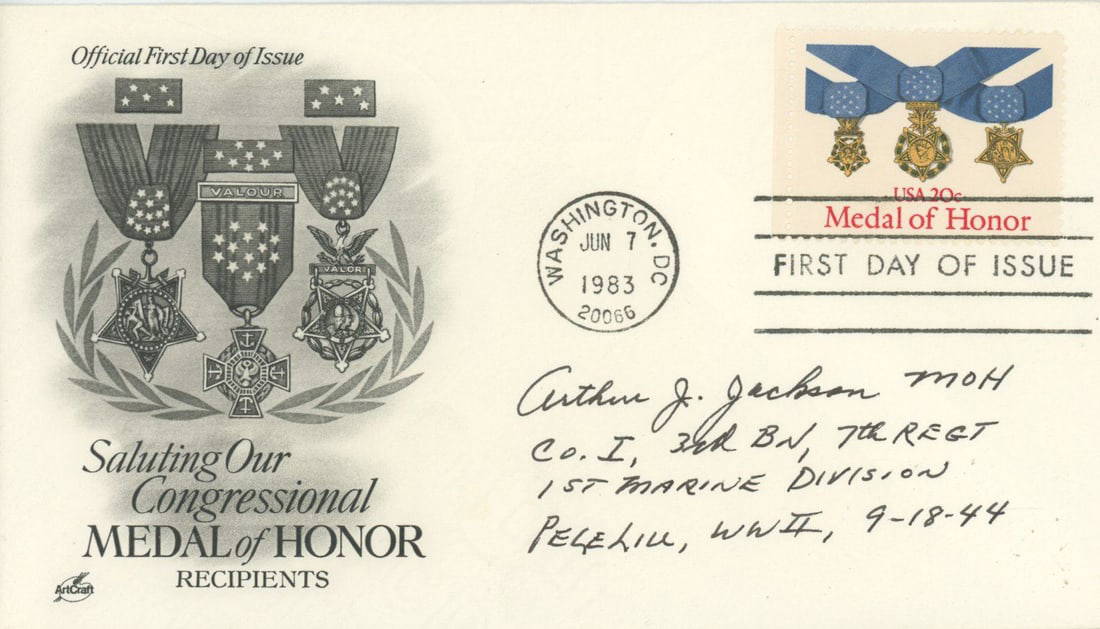 Official First Day of Issue
VALOUR
VALOR
Saluting Our
Congressional
MEDAL of HONOR
RECIPIENTS
ArtCraft
USA 20c
Medal of Honor
WASHINGTON, DC
JUN 7
1983
20066
FIRST DAY OF ISSUE
Arthur J. Jackson MOH
Co. I, 3rd BN, 7th REGT
1ST MARINE DIVISION
PELELIU, WWII, 9-18-44